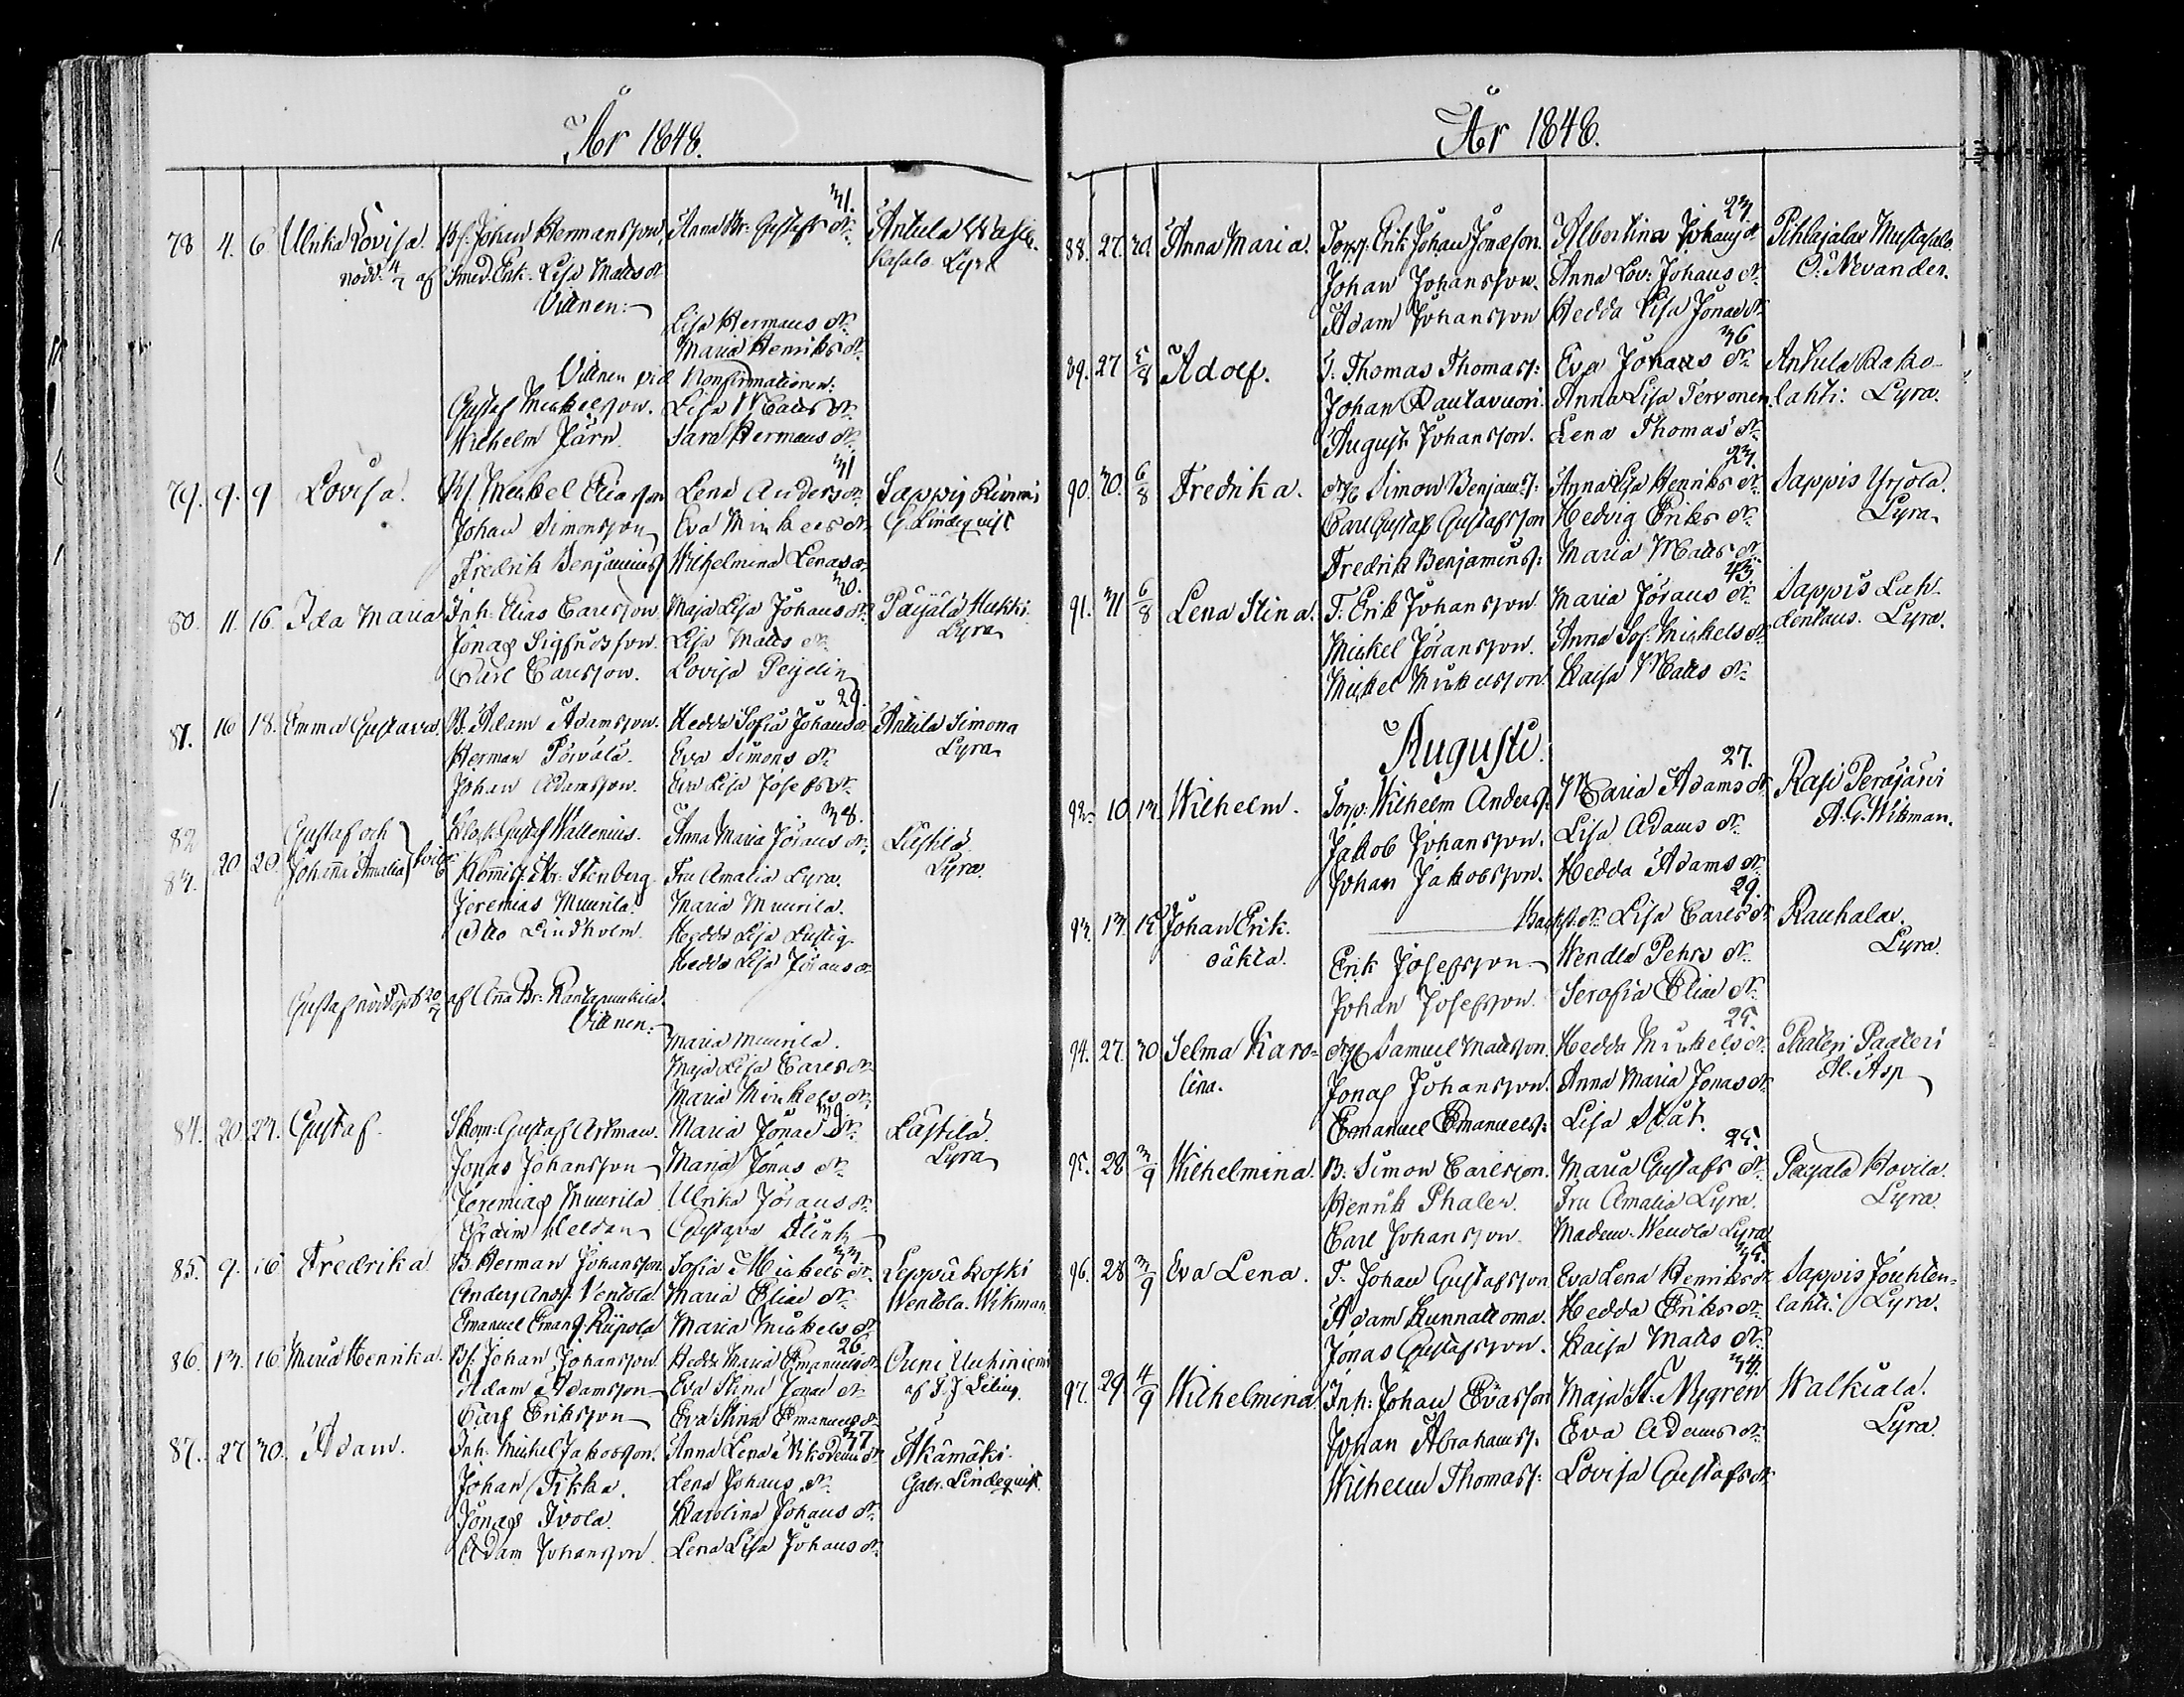 År 1848.
31.
78 4. 6. Ulrika Lovisa. Bs. Johan Hermansson, Anna Br: Gustafs dr. Anttila
nödd. 4/7 af Smed. Enk. Lisa Matts dr Kasalo Lyra
Vittnen:
Lisa Hermans dr.
Maria Henriks dr.
Vittnen vid Konfirmationen:
Gustaf Mickelsson. Lisa Matts dr.
Wilhelm Järn. Sara Hermans dr.
31
79. 9. 9 Lovisa. Bs. Mickel Eliasson Lena Anders dr. Sappis
Johan Simonsson Eva Mickels dr. G. Lindequist
Fredrik Benjamins. Wilhelmina Lenas dr.
30.
80. 11. 16. Ida Maria Inh. Elias Carlsson. Maja Lisa Johans dr. Päijälä Hukki.
Jonas Sigfridsson. Lisa Matts dr. Lyra
Carl Carlsson. Lovisa Peijelin
29.
81. 16 18. Emma Gustava. B. Adam Adamsson. Hedda Sofia Johans dr. Anttila Simona
Herman Päivälä. Eva Simons dr. Lyra
Johan Adamsson. Eva Lisa Josefs dr.
38.
82. Gustaf och Klock. Gustaf Wallenius. Anna Maria Jörans dr. Lästilä
83. 20. 20. Johanna Amalia Kommiss. Ar: Stenberg. Fru Amalia Lyra. Lyra.
Jeremias Muurila. Maria Muurila.
Otto Lindholm. Hedda Lisa Lustig
Hedda Lisa Jörans dr.
Gustaf nöddöpt 20/7 af Anna Br: Rantapunkila
Vittnen:
Maria Muurila.
Maja Lisa Carls dr.
Maria Mickels dr.
39.
84. 20. 23. Gustaf. Skom: Gustaf Astman. Maria Jonas dr. Lästilä.
Jonas Johansson Maria Jonas dr. Lyra
Jeremias Muurila Ulrika Jörans dr.
Efraim Heldan Gustava Klink
33.
85. 9. 16 Fredrika. B. Herman Johansson. Sofia Mickels dr. Leppäkoski
Anders Ands: Ventola. Maria Elias dr. Wentola. Wikman.
Emanuel Eman s. Riipola Maria Mickels dr.
26.
86. 13. 16. Maria Henrika. Bs. Johan Johansson. Hedda Maria Emanuels dr. Ouni Uuhiniemi
Adam Adamsson Eva Stina Jonas dr. af
Carl Eriksson Eva Stina Emanuels dr.
37
87. 27 30. Adam. Inh. Mickel Jakobsson. Anna Lena Nikodemi dr. Äkämäki.
Johan Tikka. Lena Johans dr. Gabr. Lindequist.
Jonas Ivola. Karolina Johans dr.
Adam Johansson. Lena Lisa Johans dr.
År 1848.
23.
88. 27. 30. Anna Maria. Torp. Erik Johan Jonasson. Albertina Johans dr. Pihlajalax Mustasalo
Johan Johansson. Anna Lov: Johans dr. O. Nevander.
Adam Johansson Hedda Lisa Jonas dr.
36
89. 27 5/8 Adolf. I. Thomas Thomass: Eva Johans dr. Anttila Kako-
Johan Rautavuori. Anna Lisa Tervonen. lahti: Lyra.
August Johansson. Lena Thomas dr.
23.
90. 30. 6/8 Fredrika. Simon Benjam s. Anna Lisa Henriks dr. Sappis Yrjölä.
Carl Gustaf Gustafsson Hedvig Eriks dr. Lyra.
Fredrik Benjamins s: Maria Matts dr.
43
91. 31 6/8 Lena Stina. T. Erik Johansson Maria Jörans dr. Sappis Lah-
Mickel Jöransson. Anna Sof. Mickels dr. dentaus. Lyra.
Mickel Mickelsson. Kaisa Matts dr.
Augusti.
27.
92. 10 13. Wilhelm. Torp: Wilhelm Anders s. Maria Adams dr. Rasi Peräjärvi
Jakob Johansson. Lisa Adams dr. A. G. Wikman.
Johan Jakobsson. Hedda Adams dr.
29.
93. 13. 15 Johan Erik. Backst. dr. Lisa Carls dr. Rauhala.
oäkta. Erik Josefsson. Wendla Pehrs dr. Lyra.
Johan Josefsson. Serafia Elias dr.
25.
94. 27. 30 Selma Karo- Samuel Mattsson. Hedda Mickels dr. Phaleri Paaleri
lina. Jonas Johansson. Anna Maria Jonas dr. Al. Asp
Emanuel Emanuels: Lisa Stät.
25.
95. 28 3/9 Wilhelmina. B. Simon Carlsson. Maria Gustafs dr. Payala Hovila.
Henrik Phaler. Fru Amalia Lyra. Lyra.
Carl Johansson. Madem. Wendla Lyra.
35.
96. 28 3/9 Eva Lena. T. Johan Gustafsson Eva Lena Henriks dr. Sappis Jouhten-
Adam Kunnattoma. Hedda Eriks dr. lahti: Lyra.
Jonas Gustafsson. Kaisa Matts dr.
34.
97. 29. 4/9 Wilhelmina. Inh: Johan Evasson Maja St. Nygren Walkiala.
Johan Abrahams s. Eva Adams dr. Lyra.
Wilhelm Thomass: Lovisa Gustafs dr.